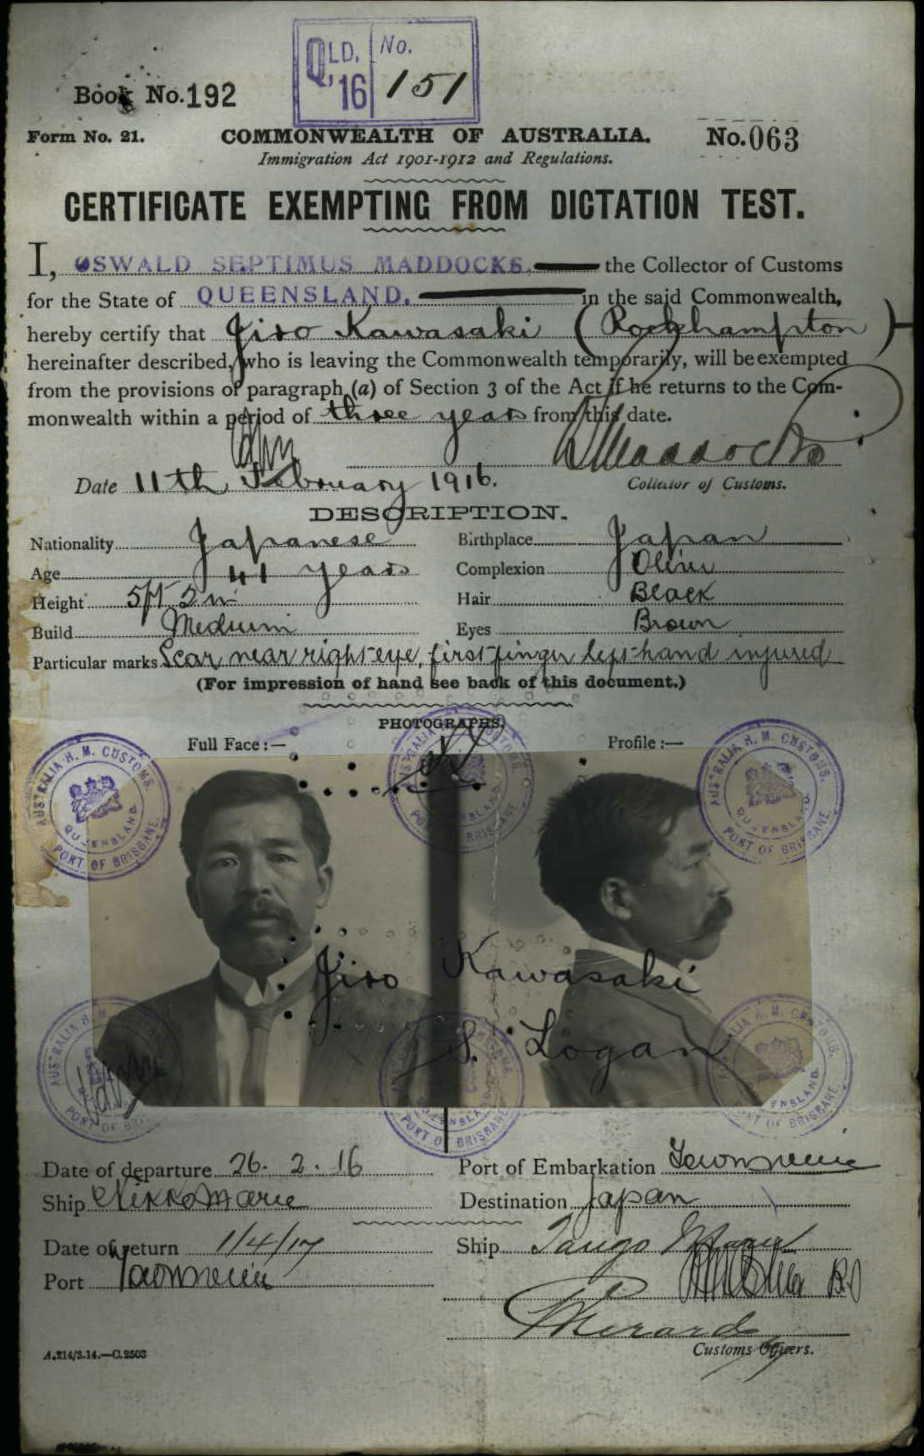 QLD. No.
'16 151
Book No. 192
Form No. 21. COMMONWEALTH OF AUSTRALIA. No. 063
Immigration Act 1901-1912 and Regulations.
CERTIFICATE EXEMPTING FROM DICTATION TEST.
I, OSWALD SEPTIMUS MADDOCKS, the Collector of Customs
for the State of QUEENSLAND. in the said Commonwealth,
hereby certify that Jiro Kawasaki (Rockhampton)
hereinafter described, who is leaving the Commonwealth temporarily, will be exempted
from the provisions of paragraph (a) of Section 3 of the Act if he returns to the Com-
monwealth within a period of three years from this date.
Maddocks
Date 11th February 1916. Collector of Customs.
DESCRIPTION.
Nationality Japanese Birthplace Japan
Age 41 years Complexion Olive
Height 5ft 2in Hair Black
Build Medium Eyes Brown
Particular marks Scar near right eye, first finger left hand injured
(For impression of hand see back of this document.)
PHOTOGRAPHS.
Full Face :— Profile :—
AUSTRALIA H. M. CUSTOMS. QUEENSLAND. PORT OF BRISBANE.
AUSTRALIA H. M. CUSTOMS. QUEENSLAND. PORT OF BRISBANE.
AUSTRALIA H. M. CUSTOMS. QUEENSLAND. PORT OF BRISBANE.
Jiro Kawasaki
S. Logan
AUSTRALIA H. M. CUSTOMS. QUEENSLAND. PORT OF BRISBANE.
AUSTRALIA H. M. CUSTOMS. QUEENSLAND. PORT OF BRISBANE.
AUSTRALIA H. M. CUSTOMS. QUEENSLAND. PORT OF BRISBANE.
Date of departure 26. 2. 16 Port of Embarkation Townsville
Ship Nikko Maru Destination Japan
Date of return 1/4/17 Ship Tango Maru
Port Townsville
Customs Officers.
A.214/3.14.—C.2503